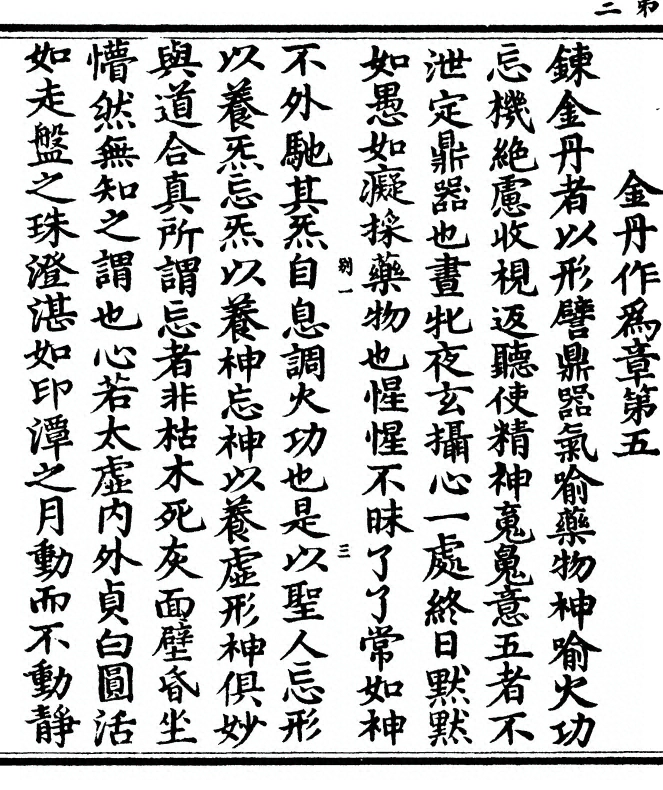 第二
金丹作爲章第五
鍊金丹者以形譬鼎器氣喻藥物神喻火功
忘機絶慮收視返聽使精神䰟魄意五者不
泄定鼎器也晝牝夜玄攝心一處終日默默
如愚如癡採藥物也惺惺不昧了了常如神
别一
三
不外馳其炁自息調火功也是以聖人忘形
以養炁忘炁以養神忘神以養虛形神俱妙
與道合真所謂忘者非枯木死灰面壁昏坐
懵然無知之謂也心若太虛內外貞白圓活
如走盤之珠澄湛如印潭之月動而不動靜